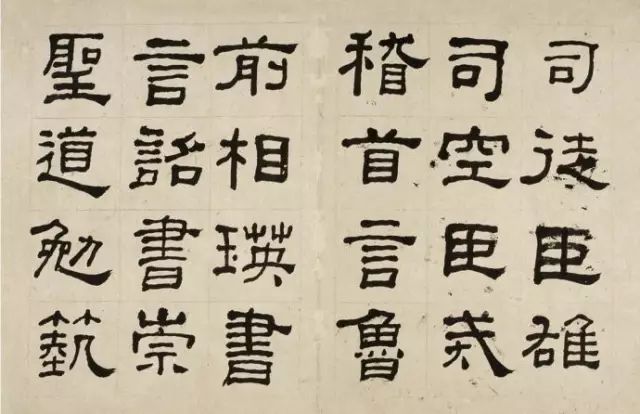 司徒臣雄
司空臣戒
稽首言魯
前相瑛書
言詔書崇
聖道勉蓺